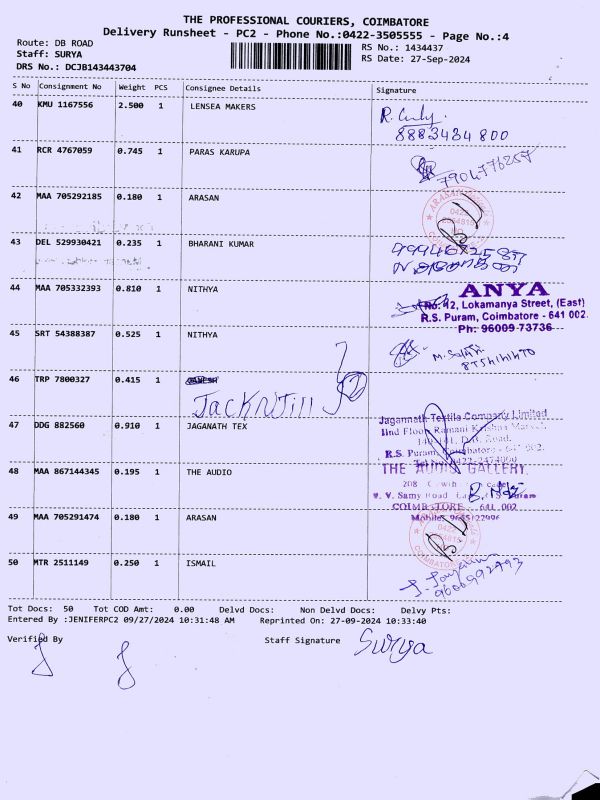 THE PROFESSIONAL COURIERS, COIMBATORE
Delivery Runsheet - PC2 - Phone No.:0422-3505555 - Page No.:4
Route: DB ROAD
Staff: SURYA
DRS No.: DCJB143443704
RS No.: 1434437
RS Date: 27-Sep-2024
S No Consignment No Weight PCS Consignee Details Signature
40 KMU 1167556 2.500 1 LENSEA MAKERS
8883434800
41 RCR 4767059 0.745 1 PARAS KARUPA
7904776257
42 MAA 705292185 0.180 1 ARASAN
43 DEL 529930421 0.235 1 BHARANI KUMAR
44 MAA 705332393 0.810 1 NITHYA
ANYA
No. 12, Lokamanya Street, (East)
R.S. Puram, Coimbatore - 641 002.
Ph: 96009 73736
45 SRT 54388387 0.525 1 NITHYA
46 TRP 7800327 0.415 1
Jack N Jill
47 DDG 882560 0.910 1 JAGANATH TEX
Jagannath Textile Company Limited
IInd Floor, Ramani Krishna
D.B. Road,
R.S. Puram, Coimbatore - 641 002.
48 MAA 867144345 0.195 1 THE AUDIO
THE AUDIO GALLERY
COIMBATORE - 641 002
49 MAA 705291474 0.180 1 ARASAN
50 MTR 2511149 0.250 1 ISMAIL
9600992793
Tot Docs: 50 Tot COD Amt: 0.00 Delvd Docs: Non Delvd Docs: Delvy Pts:
Entered By :JENIFERPC2 09/27/2024 10:31:48 AM Reprinted On: 27-09-2024 10:33:40
Verified By Staff Signature Surya